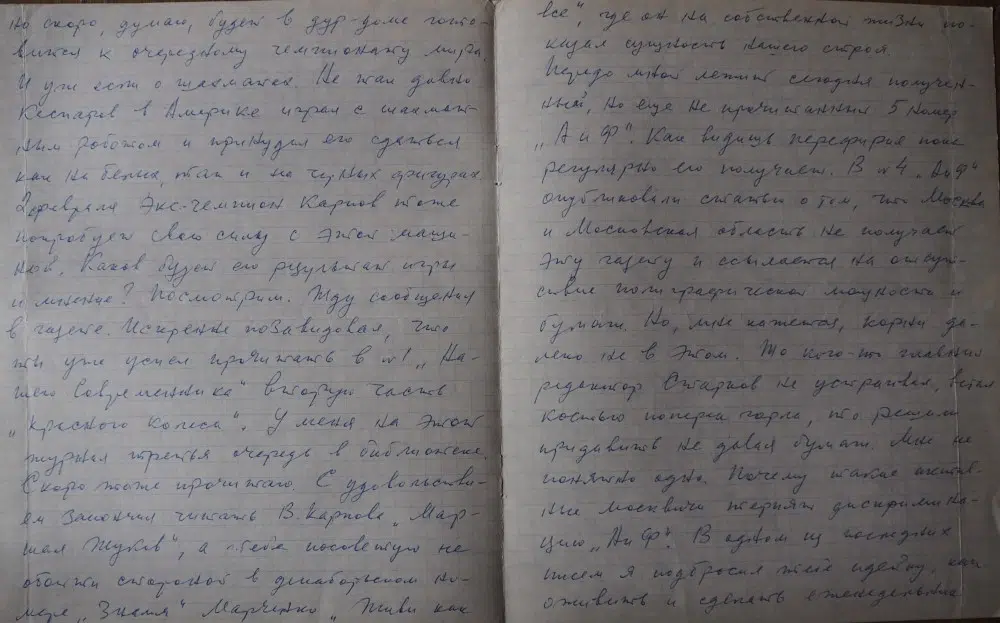 но скоро, думаю, будет в дур-доме гото-
вится к очередному чемпионату мира.
И уж коли о шахматах. Не так давно
Каспаров в Америке играл с шахмат-
ным роботом и принудил его сдаться
как на белых, так и на черных фигурах.
2 февраля Экс-чемпион Карпов тоже
попробует свою силу с этой маши-
ной. Каков будет его результат игры
и мнение? Посмотрим. Жду сообщения
в газете. Искренне позавидовал, что
ты уже успел прочитать в №1 „На-
шего Современника" вторую часть
„Красного Колеса". У меня на этот
журнал третья очередь в библиотеке.
Скоро тоже прочитаю. С удовольстви-
ем закончил читать В. Карпова „Мар-
шал Жуков", а тебе посоветую не
обойти стороной в декабрьском но-
мере „Знамя" Марченко „Живи как
все", где он на собственной жизни по-
казал сущность нашего строя.
Передо мной лежит сегодня получен-
ный, но еще не прочитанный 5 номер
„АиФ". Как видишь периферия пока
регулярно его получает. В №4 „АиФ"
опубликовали статью о том, что Москва
и Московская область не получает
эту газету и ссылается на отсут-
ствие полиграфической мощности и
бумаги. Но, мне кажется, корни да-
леко не в этом. То кого-то главный
редактор Старков не устраивал, встал
костью поперек горла, что решили
придавить не давая бумаги. Мне не
понятно одно. Почему такие актив-
ные москвичи терпят дискримина-
цию „АиФ". В одном из последних
писем я подбросил тебе идейку, как
оживить и сделать еженедельные